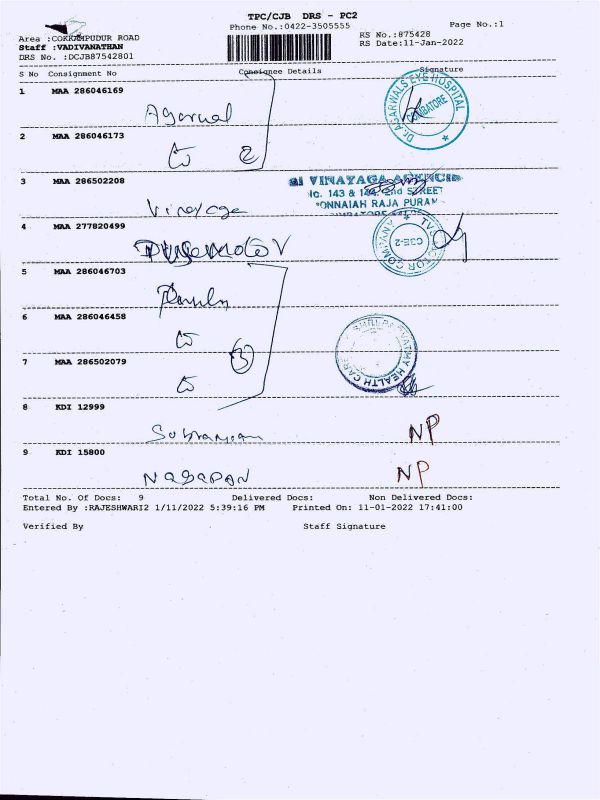 TPC/CJB DRS - PC2
Phone No.:0422-3505555
Page No.:1
Area :COKKAMPUDUR ROAD
RS No.:875428
Staff :VADIVANATHAN
RS Date:11-Jan-2022
DRS No. :DCJB87542801
S No Consignment No Consignee Details Signature
1 MAA 286046169
Agarwal
DR. AGARWALS EYE HOSPITAL COIMBATORE
2 MAA 286046173
2
3 MAA 286502208
VINAYAGA
No. 143 & 144, 2nd STREET
PONNAIAH RAJA PURAM
Vinayaga
4 MAA 277820499
CBE-2
5 MAA 286046703
6 MAA 286046458
3
HEALTH CARE
7 MAA 286502079
8 KDI 12999
Subramian NP
9 KDI 15800
NAGAPAN NP
Total No. Of Docs: 9 Delivered Docs: Non Delivered Docs:
Entered By :RAJESHWARI2 1/11/2022 5:39:16 PM Printed On: 11-01-2022 17:41:00
Verified By Staff Signature